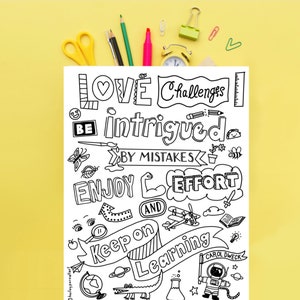 LOVE
Challenges
BE intrigued
BY MISTAKES
ENJOY EFFORT
AND
Keep on
Learning
CAROL DWECK